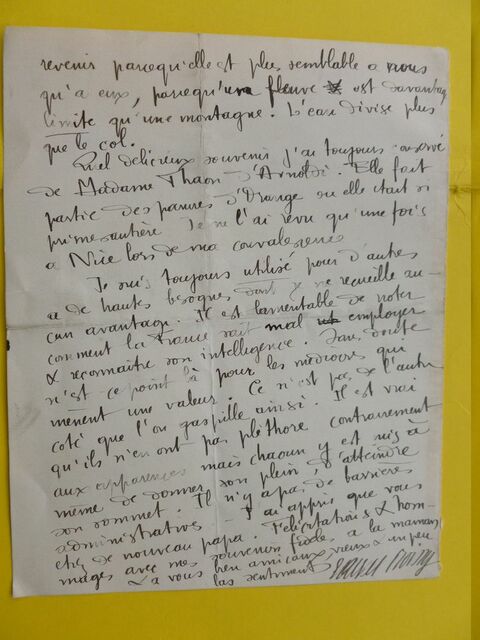 revenir parcequ'elle est plus semblable a nous
qu'a eux, parcequ'un fleuve est davantage
limite qu'une montagne. L'eau divise plus
que le col.
Quel délicieux souvenir j'ai toujours conservé
de Madame Thaon d'Arnoldi. Elle fait
partie des parures d'Orange ou elle etait si
primesautière. Je ne l'ai revu qu'une fois
a Nice lors de ma convalescence.
Je suis toujours utilisé pour d'autres
a de hautes besognes dont je ne recueille au-
cun avantage. Il est lamentable de noter
comment la France sait mal employer
& reconnaitre son intelligence. Sans doute
n'est-ce point là pour les médiocres qui
mènent une valeur. Ce n'est pas de l'autre
coté que l'on gaspille ainsi. Il est vrai
qu'ils n'en ont pas pléthore contrairement
aux apparences mais chacun y est mis à
meme de donner son plein, d'atteindre
son sommet. Il n'y a pas de barrières
administratives. J'ai appris que vous
etiez de nouveau papa. Félicitations & hom-
mages avec mes souvenirs fidèles a la maman
& a vous bien amicaux vieux & un peu
las sentiments